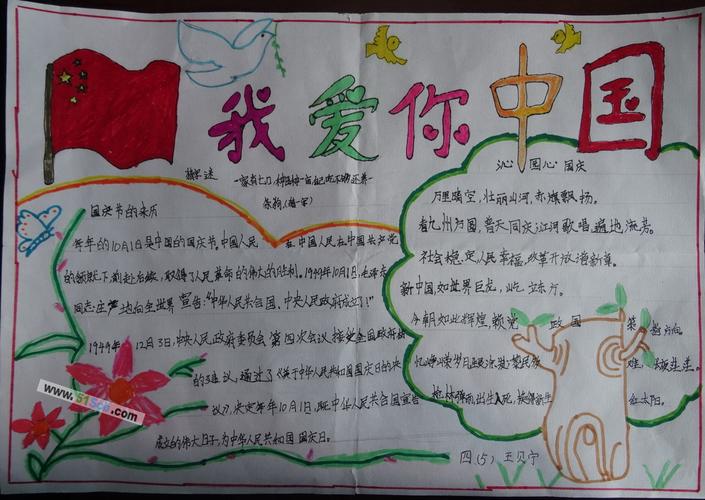 我爱你中国
猜字谜
朱鹮(猪一宰)
国庆节的来历
每年的10月1日是中国的国庆节。中国人民 在中国共产党
的领导下,前赴后继,取得了人民革命的伟大的胜利。1949年10月1日,毛泽东
同志庄严地向全世界宣告:"中华人民共和国、中央人民政府成立了!"
1949年12月3日,中央人民政府委员会第四次会议,接受全国政协
的建议,通过了《关于中华人民共和国国庆日的决
议》,决定每年10月1日,即中华人民共和国宣告
成立的伟大日子,为中华人民共和国国庆日。
沁园心 国庆
万里晴空,壮丽山河,赤旗飘扬。
看九州方圆,普天同庆,江河歌唱,遍地流芳。
社会稳定,人民幸福,改革开放谱新章。
新中国,如世界巨龙,屹立东方。
今朝如此辉煌,赖党政国策
忆峥嵘岁月
枪林弹雨,出生入死,换得新 红太阳。
四(5) 王贝宁
www.51scb.com